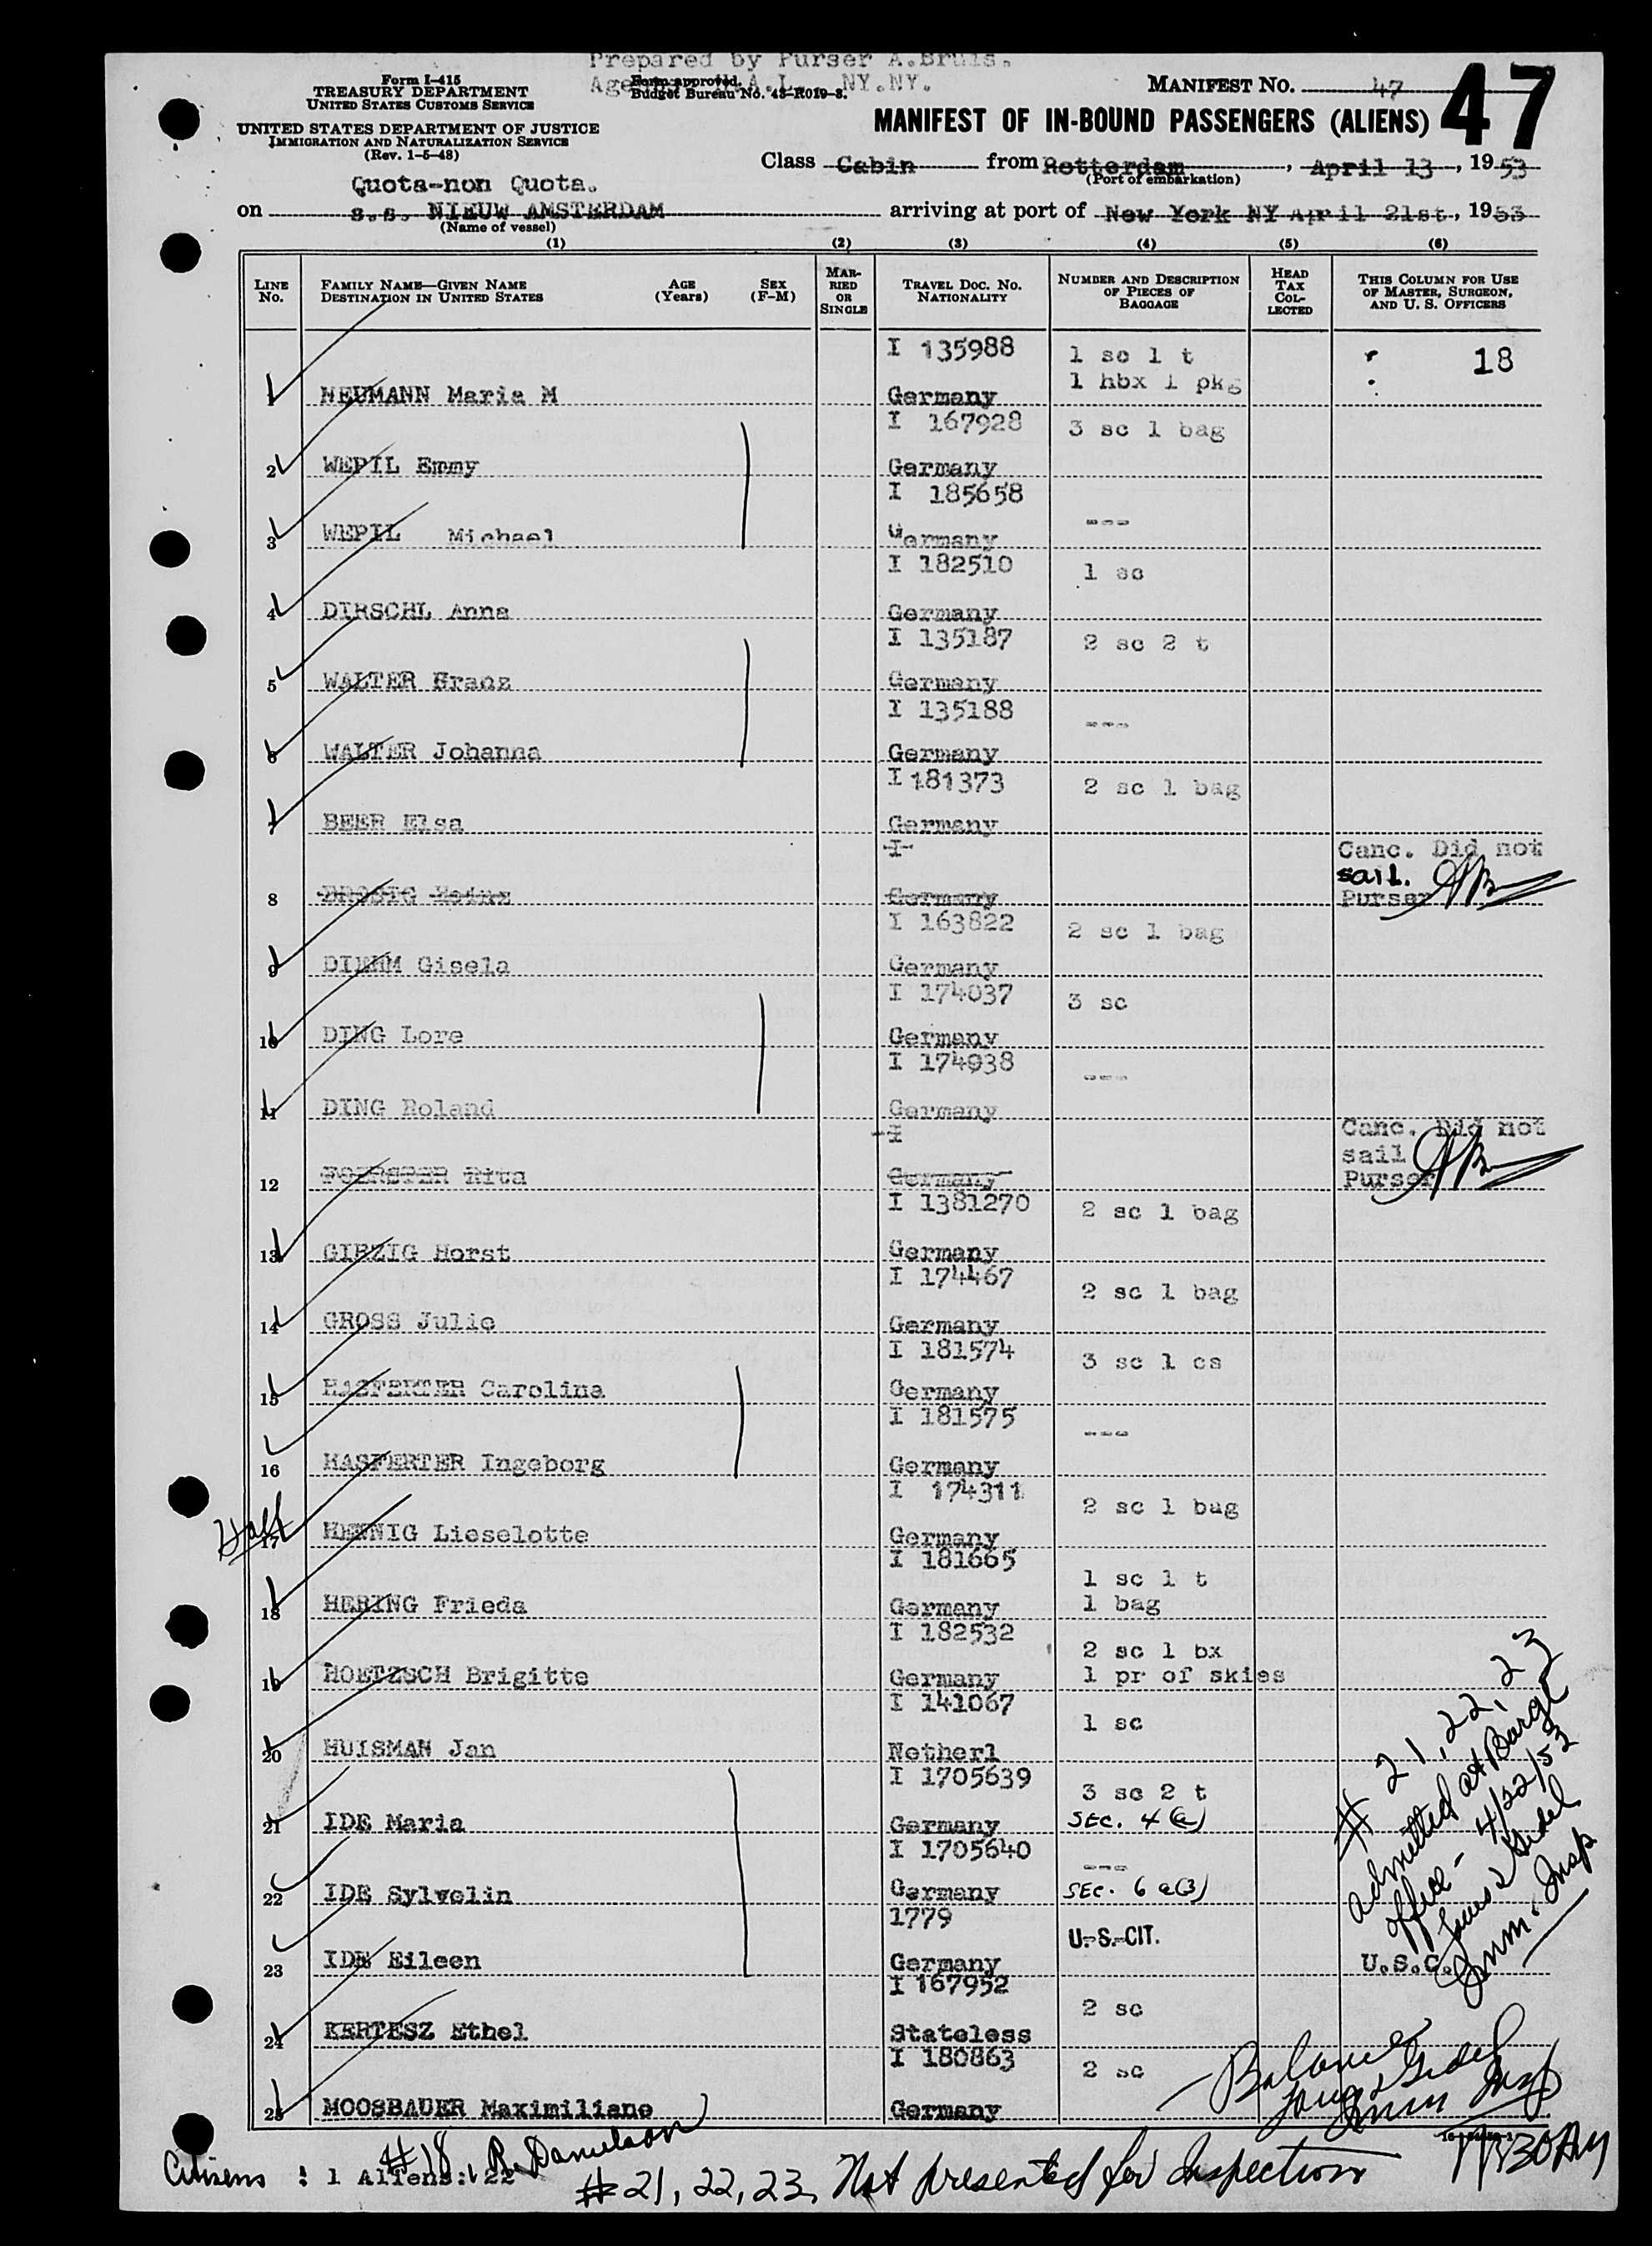 Prepared by Purser A.Bruis.
Agent A.L. NY.NY.
Form I-415
TREASURY DEPARTMENT
UNITED STATES CUSTOMS SERVICE
UNITED STATES DEPARTMENT OF JUSTICE
IMMIGRATION AND NATURALIZATION SERVICE
(Rev. 1-5-48)
Form approved.
Budget Bureau No. 43-R019-3.
MANIFEST NO. 47
47
MANIFEST OF IN-BOUND PASSENGERS (ALIENS)
Class Cabin from Rotterdam, April 13, 1953
(Port of embarkation)
Quota-non Quota.
on s.s. NIEUW AMSTERDAM arriving at port of New York NY April 21st, 1953
(Name of vessel)
(1) (2) (3) (4) (5) (6)
LINE NO.
FAMILY NAME—GIVEN NAME
DESTINATION IN UNITED STATES
AGE (Years)
SEX (F-M)
MARRIED OR SINGLE
TRAVEL DOC. NO. NATIONALITY
NUMBER AND DESCRIPTION OF PIECES OF BAGGAGE
HEAD TAX COLLECTED
THIS COLUMN FOR USE OF MASTER, SURGEON, AND U. S. OFFICERS
I 135988 1 sc 1 t 18
1 hbx 1 pkg
1 NEUMANN Maria M Germany
I 167928 3 sc 1 bag
2 WEPIL Emmy Germany
I 185658 ---
3 WEPIL Michael Germany
I 182510 1 sc
4 DIRSCHL Anna Germany
I 135187 2 sc 2 t
5 WALTER Franz Germany
I 135188 ---
6 WALTER Johanna Germany
I 181373 2 sc 1 bag
7 BEER Elsa Germany
I Canc. Did not
sail.
8 DROSTG Heinz Germany Purser
I 163822 2 sc 1 bag
9 DIEHM Gisela Germany
I 174037 3 sc
10 DING Lore Germany
I 174938 ---
11 DING Roland Germany
I Canc. Did not
sail
12 FOERSTER Rita Germany Purser
I 1381270 2 sc 1 bag
13 GIRZIG Horst Germany
I 174467 2 sc 1 bag
14 GROSS Julie Germany
I 181574 3 sc 1 cs
15 HASFERTER Carolina Germany
I 181575 ---
16 HASFERTER Ingeborg Germany
I 174311 2 sc 1 bag
17 HENNIG Lieselotte Germany
I 181665 1 sc 1 t
18 HERING Frieda Germany 1 bag
I 182532 2 sc 1 bx
19 HOETZSCH Brigitte Germany 1 pr of skies
I 141067 1 sc
20 HUISMAN Jan Netherl
I 1705639 3 sc 2 t
21 IDE Maria Germany SEC. 4 (a)
I 1705640 ---
22 IDE Sylvelin Germany SEC. 6 a(3)
1779 U.S.CIT.
23 IDE Eileen Germany U.S.C.
I 167952 2 sc
24 KERTESZ Ethel Stateless
I 180863 2 sc
25 MOOSBAUER Maximiliane Germany
# 21, 22, 23
admitted at Barge
office - 4/22/53
Imm. Insp
Balance
Imm Insp
11:30 AM
#18 R. Danielson
Citizens : 1 Aliens: 22
# 21, 22, 23, Not presented for Inspection